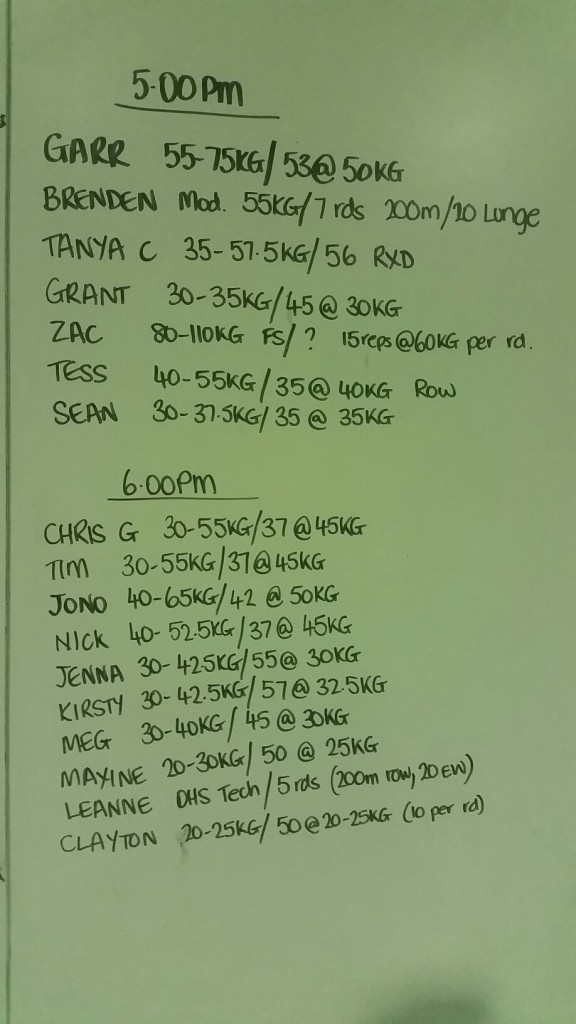 5.00pm
GARR 55-75KG/53@50KG
BRENDEN Mod. 55KG/7 rds 200m/20 Lunge
TANYA C 35-57.5KG/56 RXD
GRANT 30-35KG/45@30KG
ZAC 80-110KG FS/? 15reps@60KG per rd.
TESS 40-55KG/35@40KG Row
SEAN 30-37.5KG/35@35KG
6.00pm
CHRIS G 30-55KG/37@45KG
TIM 30-55KG/37@45KG
JONO 40-65KG/42 @ 50KG
NICK 40-52.5KG/37@45KG
JENNA 30-42.5KG/55@30KG
KIRSTY 30-42.5KG/57@32.5KG
MEG 30-40KG/45@30KG
MAXINE 20-30KG/50 @ 25KG
LEANNE OHS Tech/5rds (200m row, 20 EW)
CLAYTON 20-25KG/50@20-25KG (10 per rd)